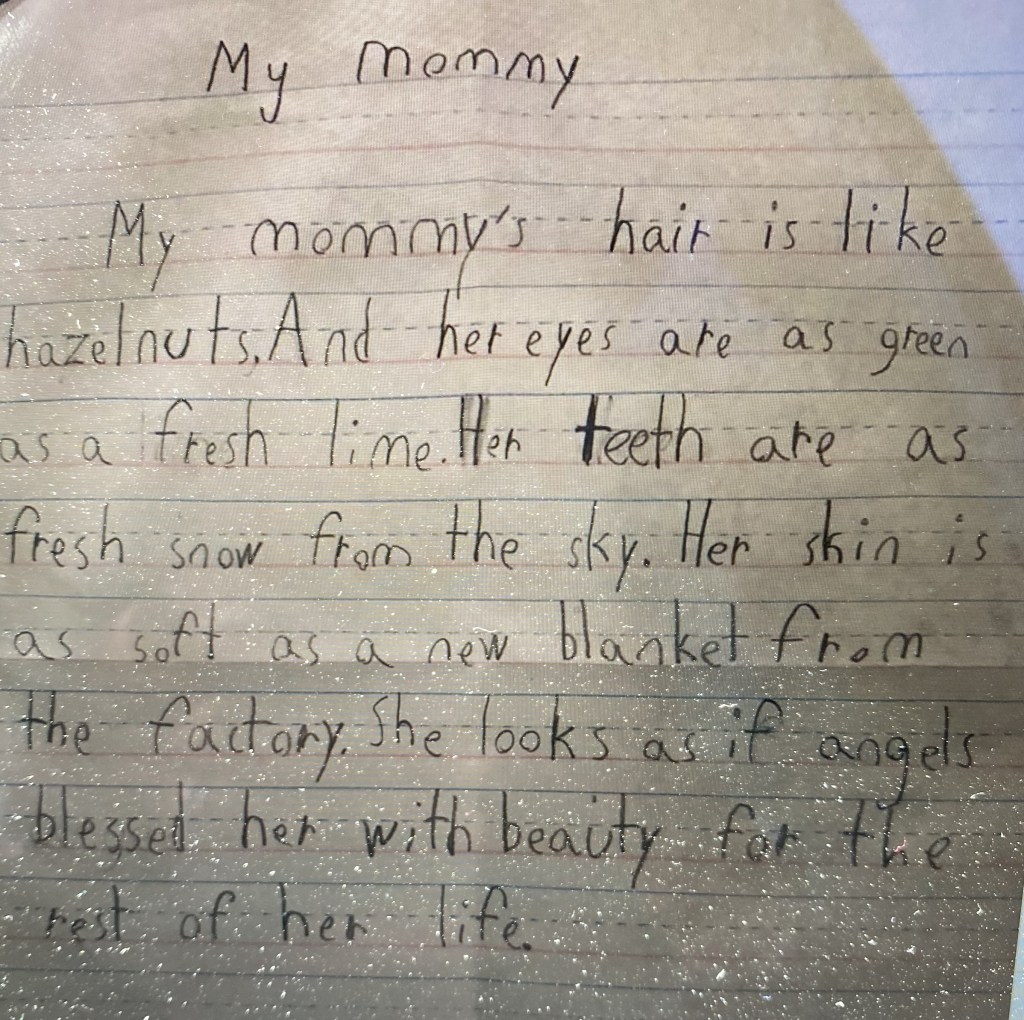 My mommy
My mommy's hair is like
hazelnuts. And her eyes are as green
as a fresh lime. Her teeth are as
fresh snow from the sky. Her skin is
as soft as a new blanket from
the factory. She looks as if angels
blessed her with beauty for the
rest of her life.